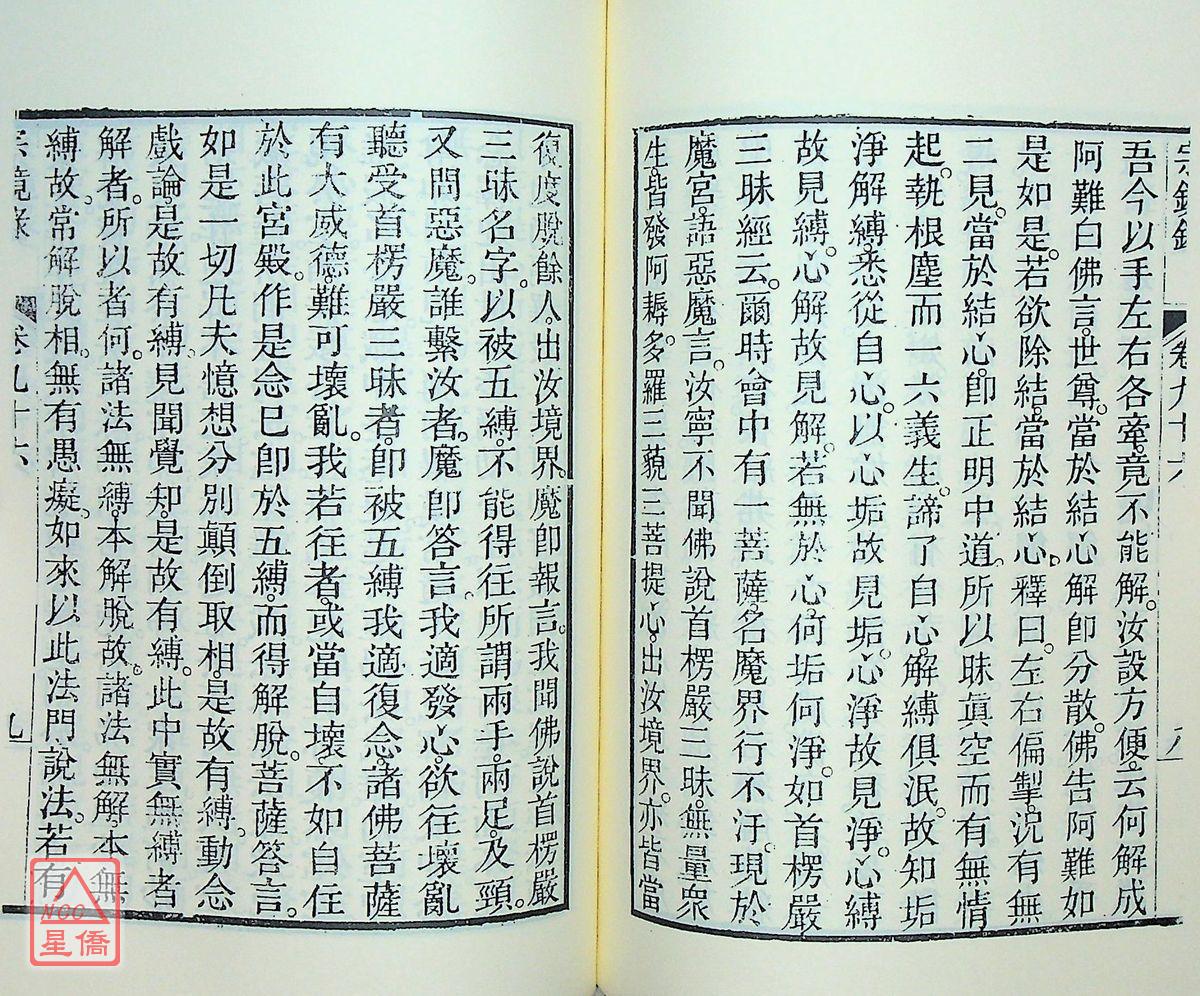 宗鏡錄
卷九十六
八
吾今以手左右各牽竟不能解汝設方便云何解成
阿難白佛言世尊當於結心解卽分散佛告阿難如
是如是若欲除結當於結心釋曰左右偏掣況有無
二見當於結心卽正明中道所以昧眞空而有無情
起執根塵而一六義生諦了自心解縛俱泯故知垢
淨解縛悉從自心以心垢故見垢心淨故見淨心縛
故見縛心解故見解若無於心何垢何淨如首楞嚴
三昧經云爾時會中有一菩薩名魔界行不汙現於
魔宮語惡魔言汝寧不聞佛說首楞嚴三昧無量衆
生皆發阿耨多羅三藐三菩提心出汝境界亦皆當
復度脫餘人出汝境界魔卽報言我聞佛說首楞嚴
三昧名字以被五縛不能得往所謂兩手兩足及頸
又問惡魔誰繫汝者魔卽答言我適發心欲往壞亂
聽受首楞嚴三昧者卽被五縛我適復念諸佛菩薩
有大威德難可壞亂我若往者或當自壞不如自住
於此宮殿作是念已卽於五縛而得解脫菩薩答言
如是一切凡夫憶想分別顚倒取相是故有縛動念
戲論是故有縛見聞覺知是故有縛此中實無縛者
解者所以者何諸法無縛本解脫故諸法無解本無
縛故常解脫相無有愚癡如來以此法門說法若有
宗鏡錄
卷九十六
九
NCC
星僑